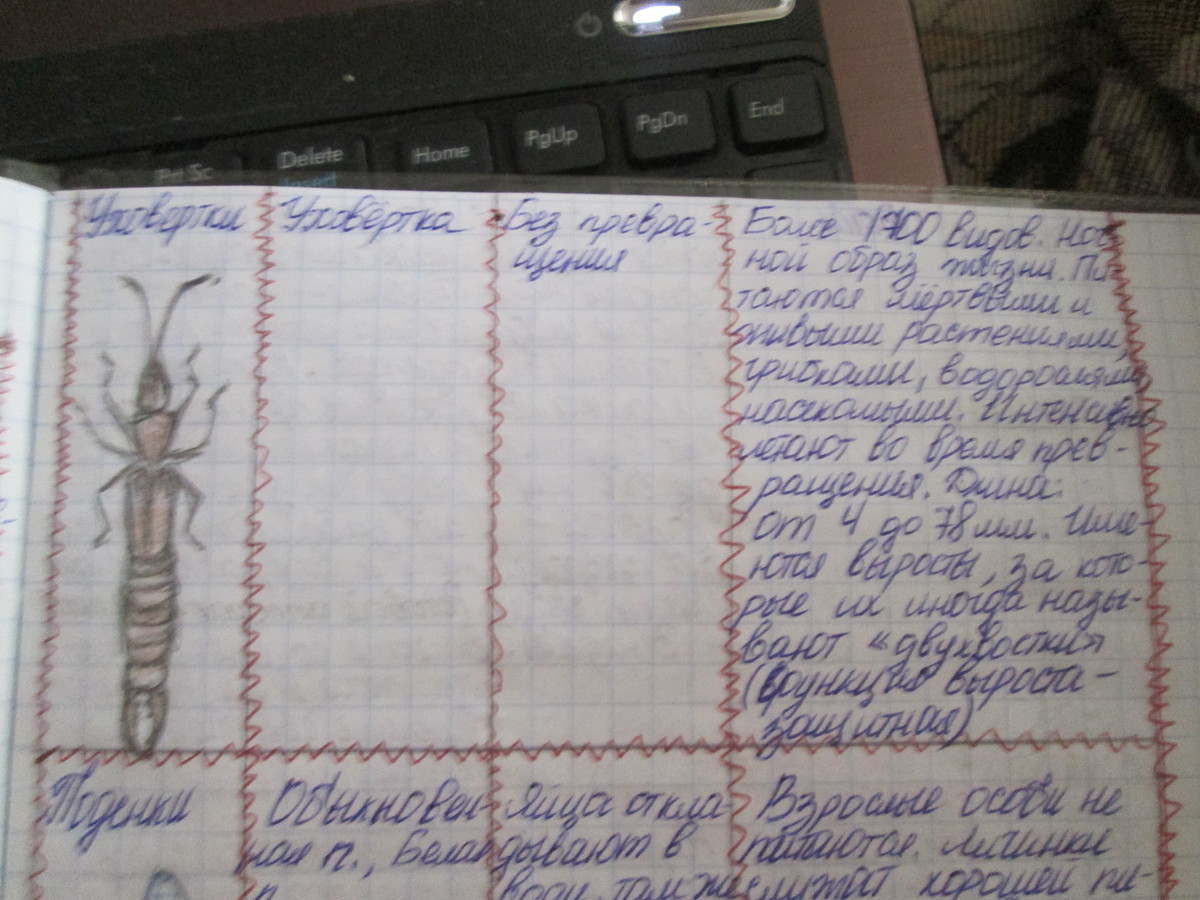 Prt Sc
Delete
Insert
Home
PgUp
PgDn
End
Уховертки
Уховёртка
Без превра-
щения
Более 1700 видов. Ноч
ной образ жизни. Пи
таются мёртвыми и
живыми растениями,
грибками, водорослями
насекомыми. Интенсивно
летают во время прев-
ращения. Длина:
от 4 до 78 мм. Име-
ются выросты, за кото-
рые их иногда назы-
вают «двухвостки»
(функция выроста-
защитная)
Поденки
Обыкновен-
ная п., Белая
п.
Яйца откла-
дывают в
воду, там же
Взрослые особи не
питаются. Личинки
служат хорошей пи-